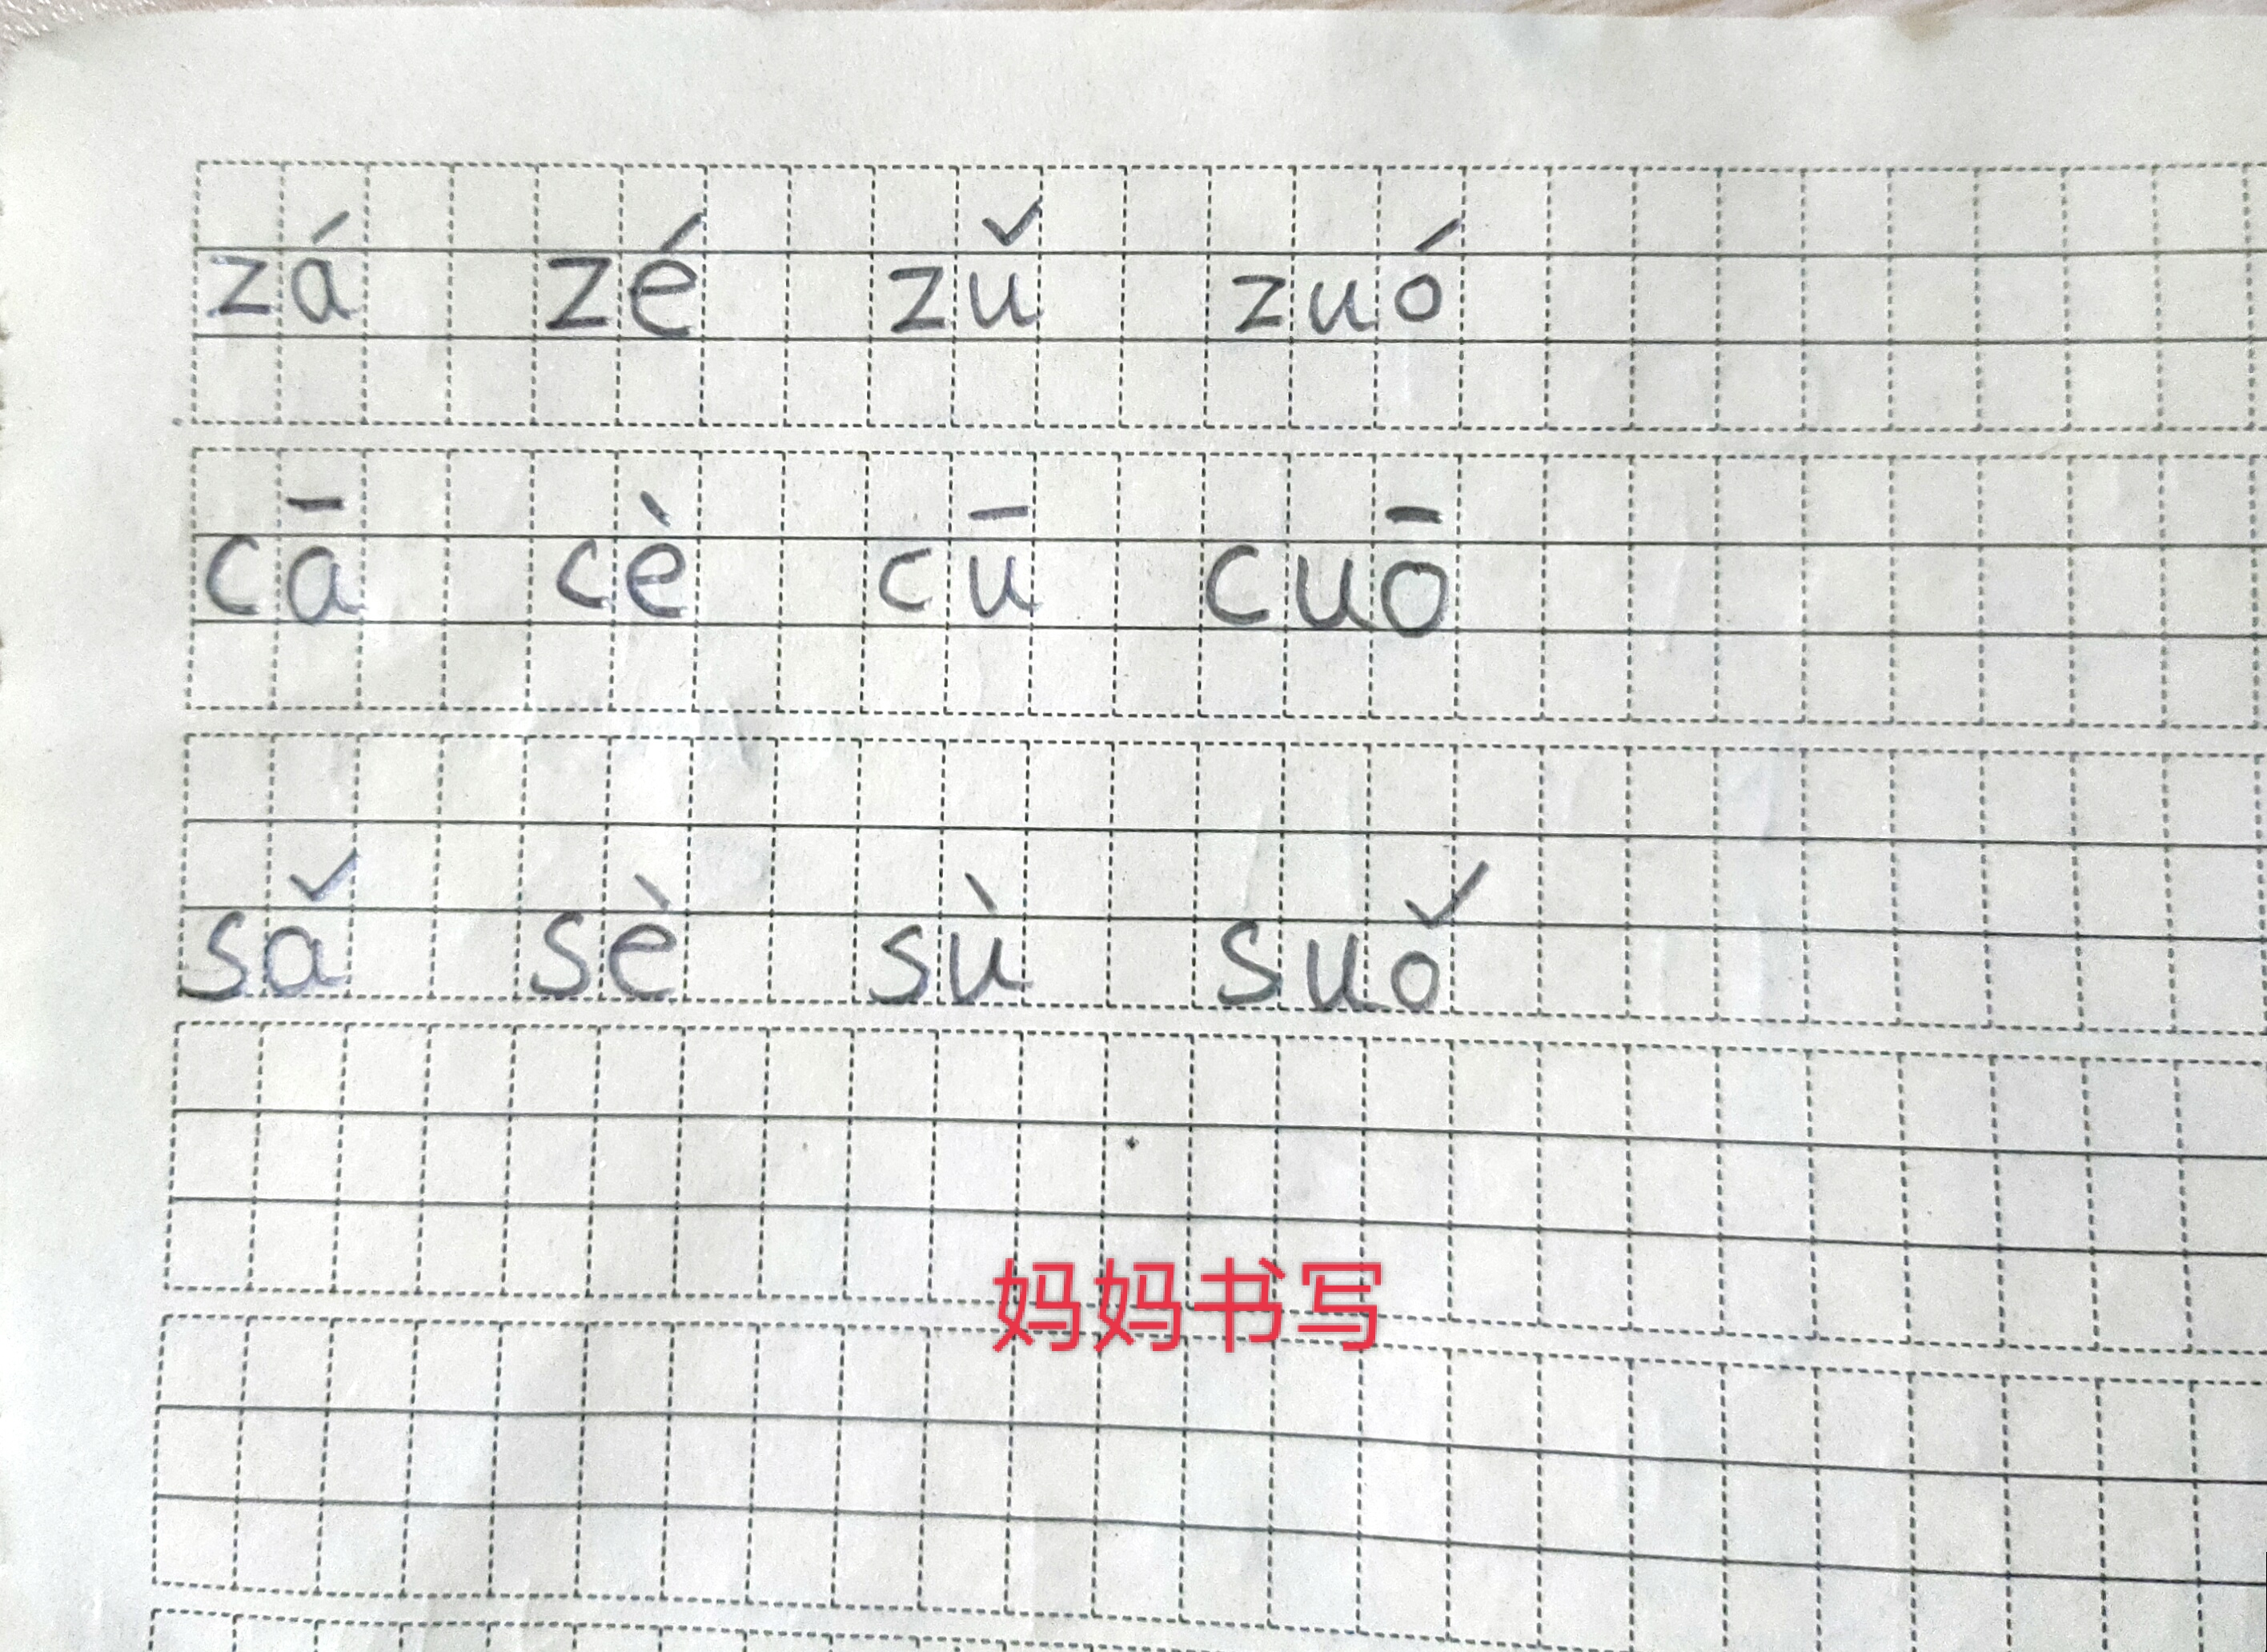 zá zé zǔ zuó
cā cè cū cuō
sǎ sè sù suǒ
妈妈书写